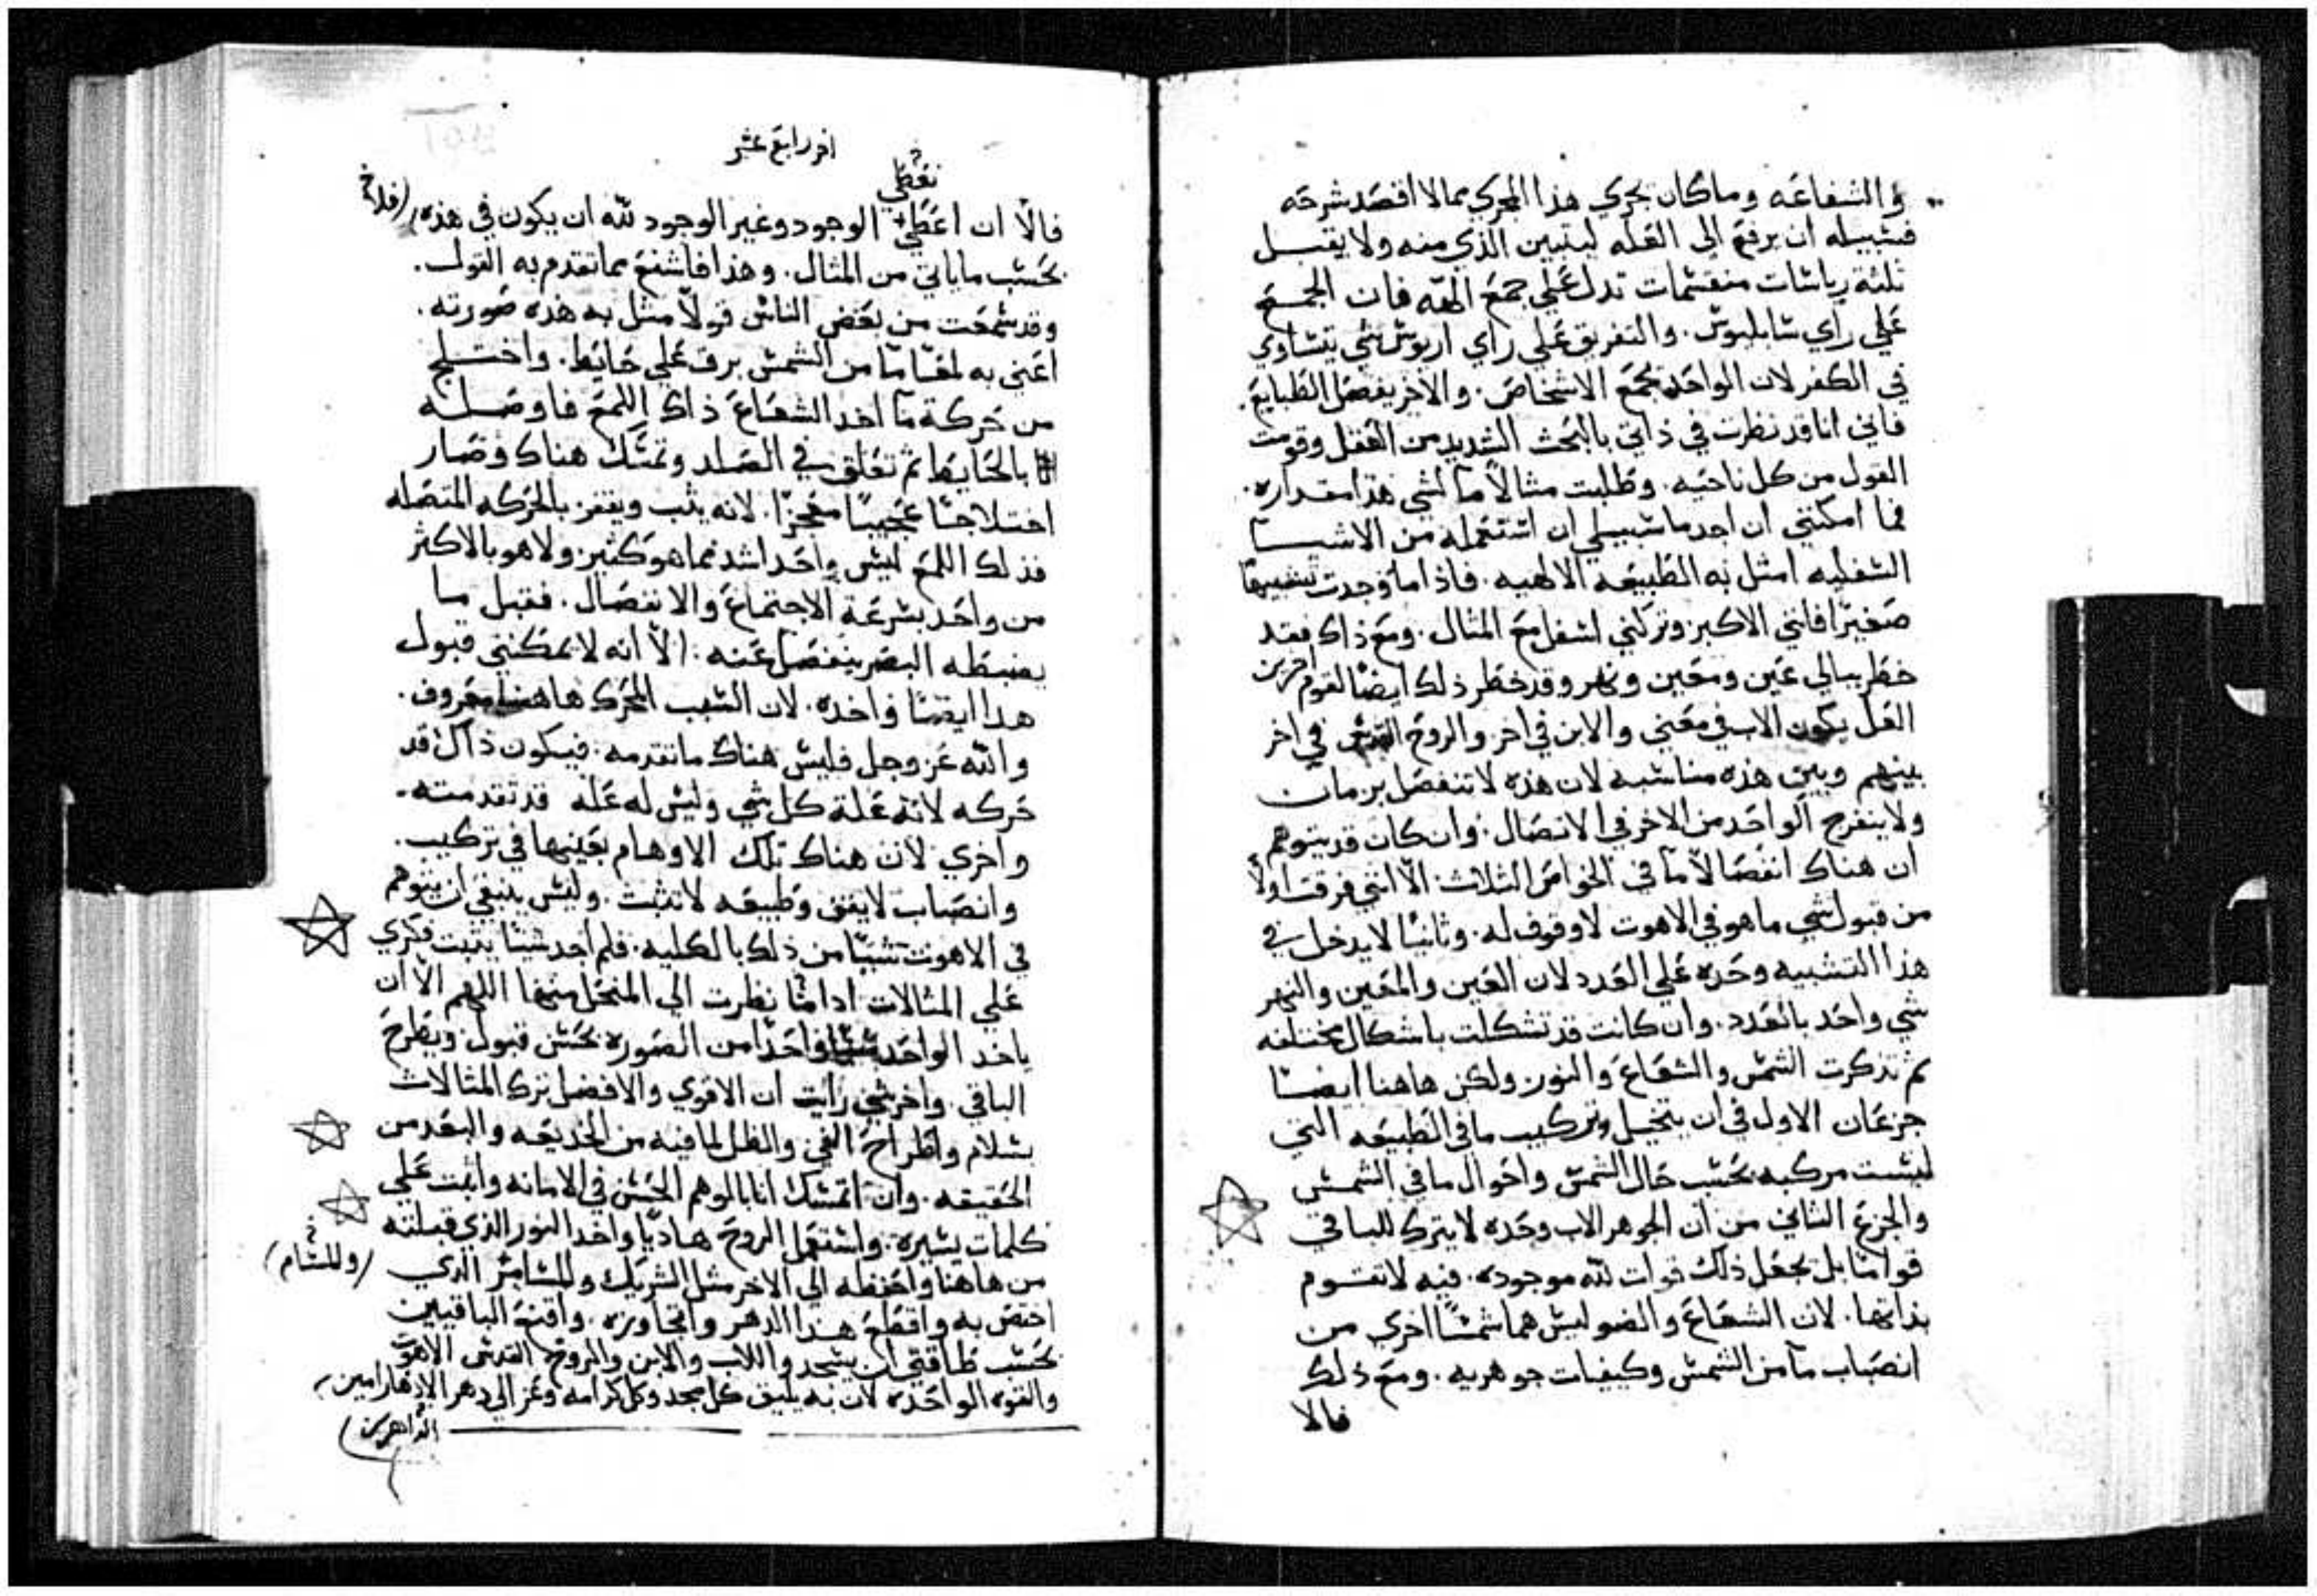 والشفاعه وماكان يجري هذا المجري مما لا اقصد شرحه
فسبيله ان يرفع الي العله ليتبين الذي منه ولا يقبل
ثلثة رياسات منقسمات تدل علي جمع الهه فان الجمع
علي راي سابليوس. والتفريق علي راي اريوس شي يتساوي
في الكفر لان الواحد يجمع الاشخاص. والاخر يفصل الطبايع.
فاني انا قد نظرت في ذاتي بالبحث الشديد من العقل وقومت
القول من كل ناحيه. وطلبت مثالاً ما لشي هذا مقداره.
فما امكنني ان اجد ما سبيلي ان استعمله من الاشيا
السفليه امثل به الطبيعه الالهيه. فاذا ما وجدت تشبيهاً
صغيراً فاتني الاكبر وتركني اسفل مع المثال. ومع ذاك فقد
خطر ببالي عين ومعين ونهر وقد خطر ذلك ايضاً لقوم اخرين
لعل يكون الاب في معني والابن في اخر والروح القدس في اخر
بينهم وبين هذه مناسبه لان هذه لا تنفصل بزمان
ولا ينفرج الواحد من الاخر في الاتصال. وان كان قد يتوهم
ان هناك انفصالاً ما في الخواص الثلاث. الا انني فرقت اولاً
من قبول شي ما هو في الاهوت لا وقوف له. وثانياً لا يدخل في
هذا التشبيه وحده علي العدد لان العين والمعين والنهر
شي واحد بالعدد. وان كانت قد تشكلت باشكال مختلفه
ثم تذكرت الشمس والشعاع والنور ولكن هاهنا ايضاً
جزعان الاول في ان يتخيل وتركيب ما في الطبيعه التي
ليست مركبه بحسب حال الشمس واحوال ما في الشمس
والجزع الثاني من ان الجوهر الاب وحده لا يترك للباقي
قواماً بل يجعل ذلك قوات لله موجوده. فيه لا تقوم
بذاتها. لان الشعاع والضو ليس هما شمساً اخري من
انصباب ما من الشمس وكيفيات جوهريه. ومع ذلك
فالا
اخر رابع عشر
نعطي
فالا ان اعطي الوجود وغير الوجود لله ان يكون في هذه
بحسب ما ياتي من المثال. وهذا فاشنع مما تقدم به القول.
وقد سمعت من بعض الناس قولاً مثل به هذه صورته.
اعني به لمعاً ما من الشمس برق علي حايط. واختلج
من حركة ما اخد الشعاع ذاك اللمع فاوصله
بالحايط ثم تعلق في الصلد وتمسك هناك وصار
اختلاجاً عجيباً معجزاً. لانه يثب ويقفز بالحركه المتصله
فذلك اللمع ليس واحد اشد مما هو كثير ولا هو بالاكثر
من واحد بسرعة الاجتماع والانفصال. فقبل ما
يضبطه البصر ينفصل عنه. الا انه لا يمكنني قبول
هدا ايضاً واحده. لان السبب المحرك هاهنا معروف.
والله عز وجل فليس هناك ما تقدمه. فيكون ذاك قد
حركه لانه علة كل شي وليس له علة قد تقدمته.
واخري لان هناك تلك الاوهام بعينها في تركيب.
وانصباب لا يقف وطبيعه لا تثبت. وليس ينبغي ان يتوهم
في الاهوت شياً من ذلك بالكليه. فلم اجد شيئا يثبت فكري
علي المثالات اداما نظرت الي المنحل منها اللهم الا ان
ياخد الواحد واحداً من الصوره بحسن قبول. ويطرح
الباقي. واخر شي رايت ان الاقوي والافضل ترك المثالات
بسلام واطراح الفي والظل لما فيه من الخديعه والبعد من
الحقيقه. وان اتمسك انا بالوهم الحسن في الامانه واثبت علي
كلمات يسيره. واستعمل الروح هادياً واخد النور الذي قبلته
من هاهنا واحفظه الي الاخر مثل الشريك وللسامر الذي
(وللشام)
اختص به واقطع هذا الدهر واتجاوزه. واقنع الباقيين
بحسب طاقتي ان يسجدوا للاب والابن والروح القدس الاهوت
والقوه الواحده لان به يليق كل مجد وكل كرامه وعز الي دهر الادهار امين
الداهرين